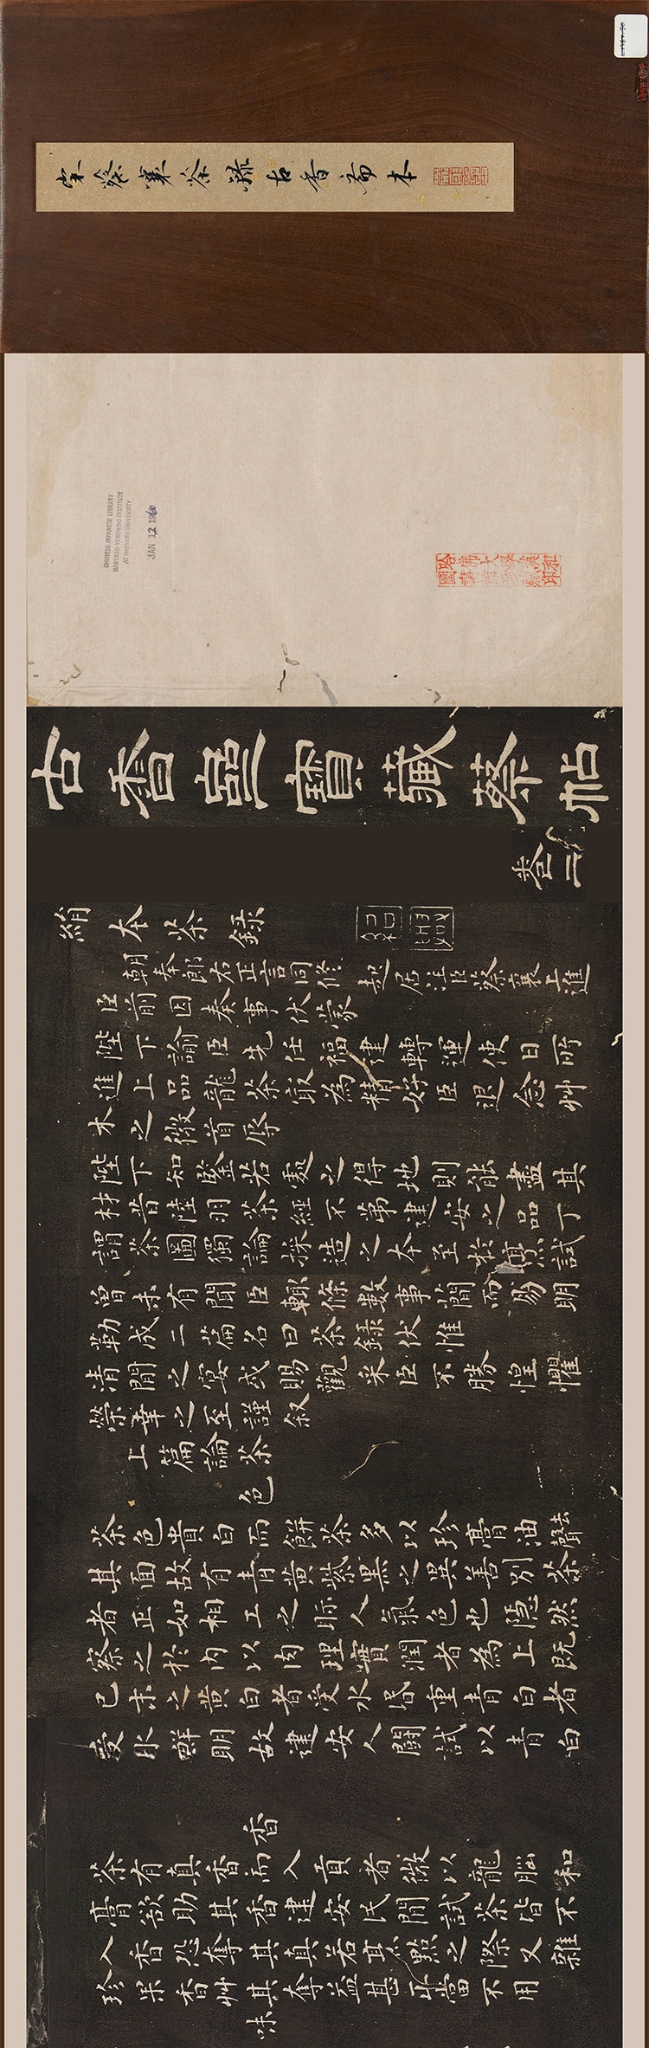 宋蔡襄茶疏古香齋本
CHINESE JAPANESE LIBRARY
HARVARD-YENCHING INSTITUTE
AT HARVARD UNIVERSITY
JAN 12 1960
古香齋寶藏蔡帖
卷二
絹本茶録
朝奉郎右正言同修起居注臣蔡襄上進
臣前因奏事伏蒙
陛下諭臣先任福建轉運使日所
進上品龍茶最為精好臣退念艸
木之微首辱
陛下知鑒若處之得地則能盡其
材昔陸羽茶經不第建安之品丁
謂茶圖獨論採造之本至於烹試
曾未有聞臣輒條數事簡而易明
勒成二篇名曰茶録伏惟
清閒之宴或賜觀采臣不勝惶懼
榮幸之至謹叙
上篇論茶
色
茶色貴白而餅茶多以珍膏油去聲
其面故有青黃紫黑之異善別茶
者正如相工之眎人氣色也隱然
察之於內以肉理實潤者為上既
已末之黃白者受水昏重青白者
受水鮮明故建安人鬭試以青白
香
茶有真香而入貢者微以龍腦和
膏欲助其香建安民間試茶皆不
入香恐奪其真若烹點之際又雜
珍果香艸其奪益甚正當不用
味